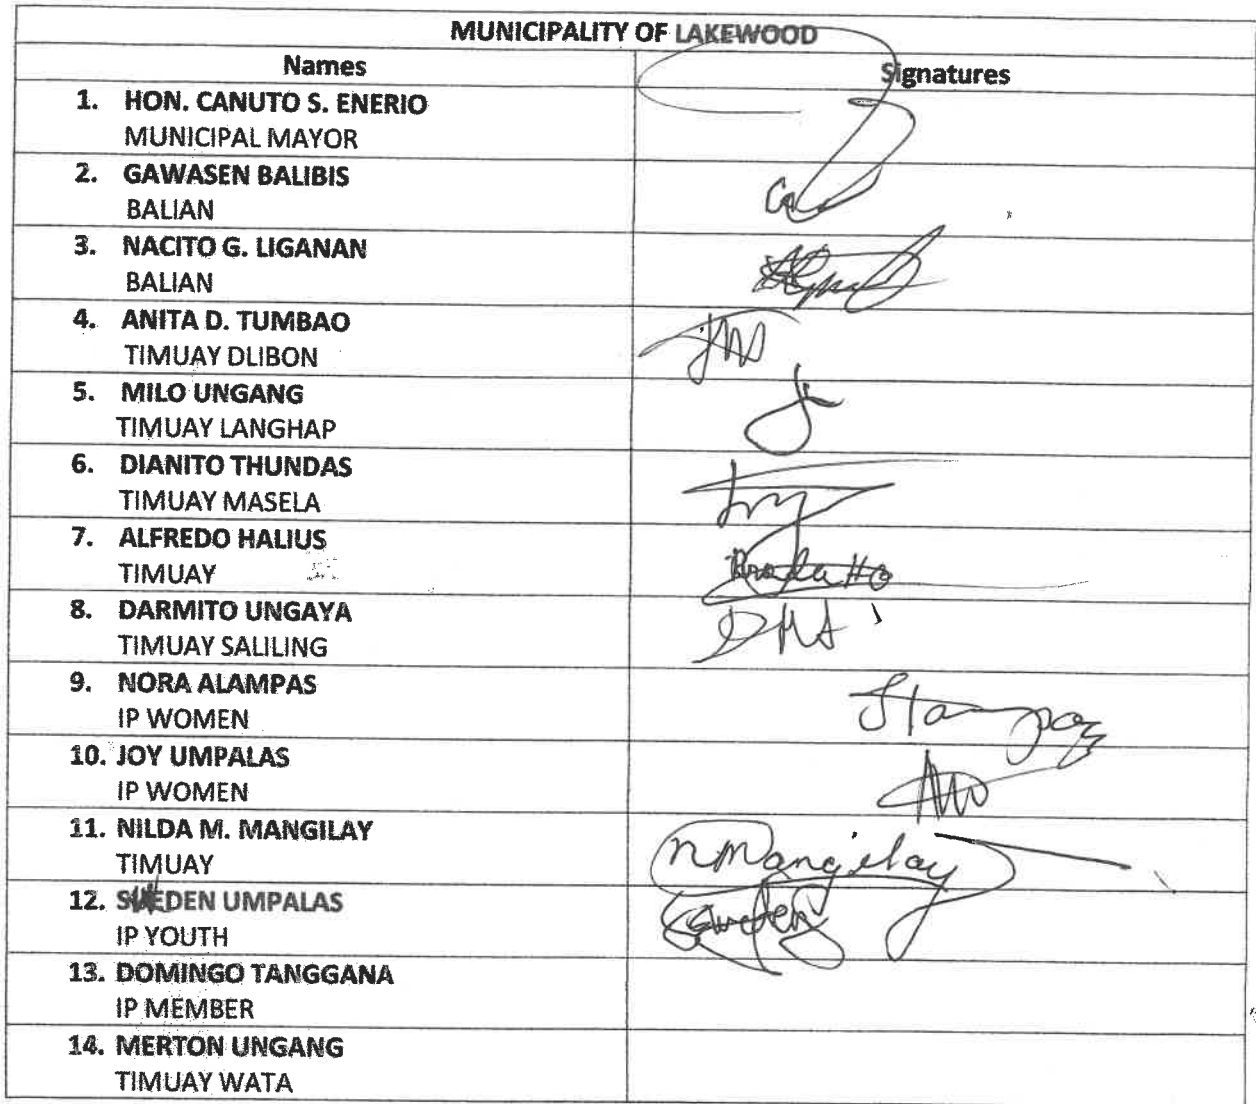 MUNICIPALITY OF LAKEWOOD
Names Signatures
1. HON. CANUTO S. ENERIO
MUNICIPAL MAYOR
2. GAWASEN BALIBIS
BALIAN
3. NACITO G. LIGANAN
BALIAN
4. ANITA D. TUMBAO
TIMUAY DLIBON
5. MILO UNGANG
TIMUAY LANGHAP
6. DIANITO THUNDAS
TIMUAY MASELA
7. ALFREDO HALIUS
TIMUAY
8. DARMITO UNGAYA
TIMUAY SALILING
9. NORA ALAMPAS
IP WOMEN
10. JOY UMPALAS
IP WOMEN
11. NILDA M. MANGILAY
TIMUAY
nmangilay
12. UMPALAS
IP YOUTH
13. DOMINGO TANGGANA
IP MEMBER
14. MERTON UNGANG
TIMUAY WATA